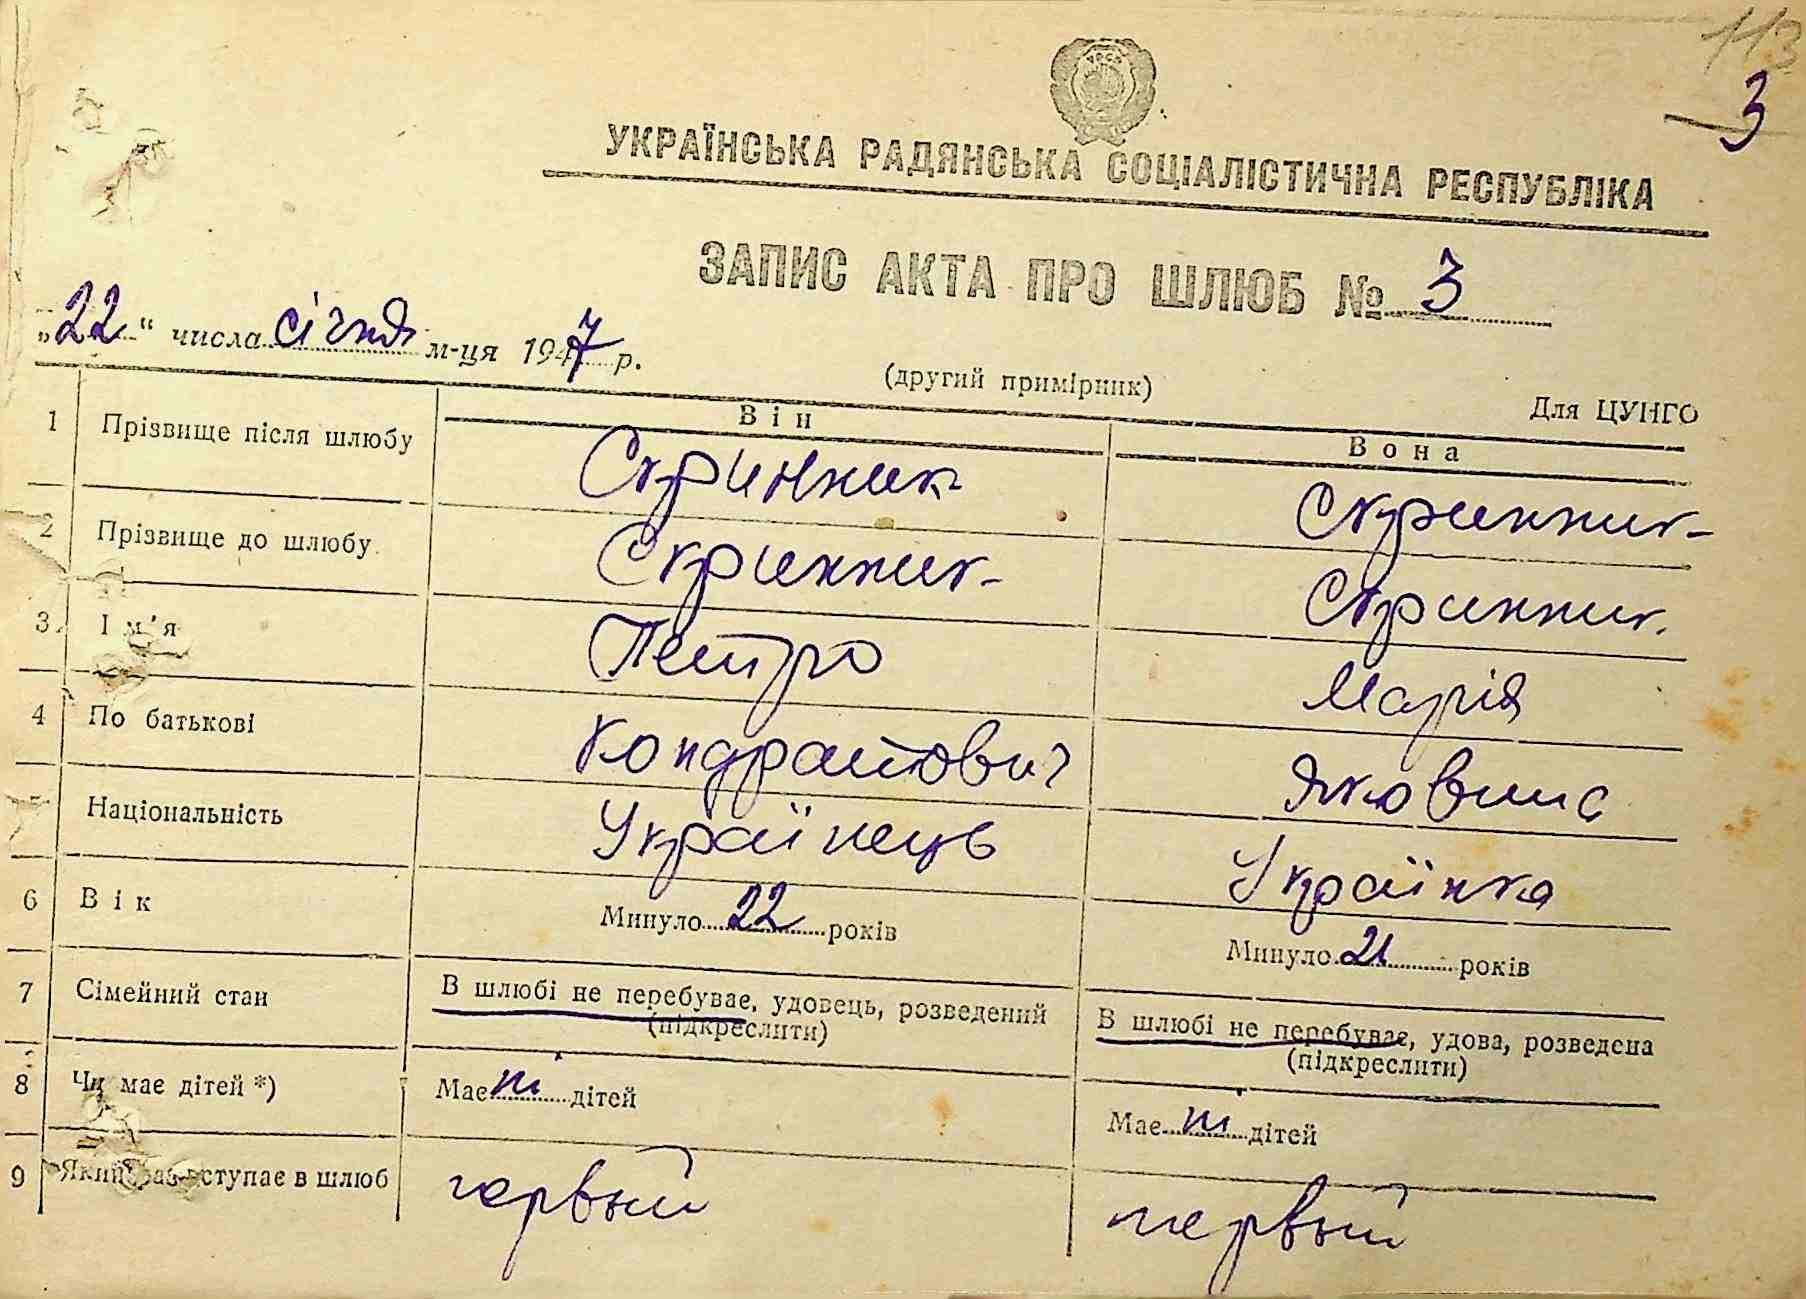 113
3
УРСР
УКРАЇНСЬКА РАДЯНСЬКА СОЦІАЛІСТИЧНА РЕСПУБЛІКА
ЗАПИС АКТА ПРО ШЛЮБ № 3
„22“ числа січня м-ця 1947 р.
(другий примірник)
Для ЦУНГО
Він Вона
1 Прізвище після шлюбу Скринник Скринник
2 Прізвище до шлюбу Скринник Скринник
3 Ім'я Петро Марія
4 По батькові Кондратович Яковлис
Національність Українець Українка
6 Вік Минуло 22 років Минуло 21 років
7 Сімейний стан В шлюбі не перебуває, удовець, розведений В шлюбі не перебуває, удова, розведена
(підкреслити) (підкреслити)
8 Чи має дітей *) Має ні дітей Має ні дітей
9 Який раз вступає в шлюб первый первый